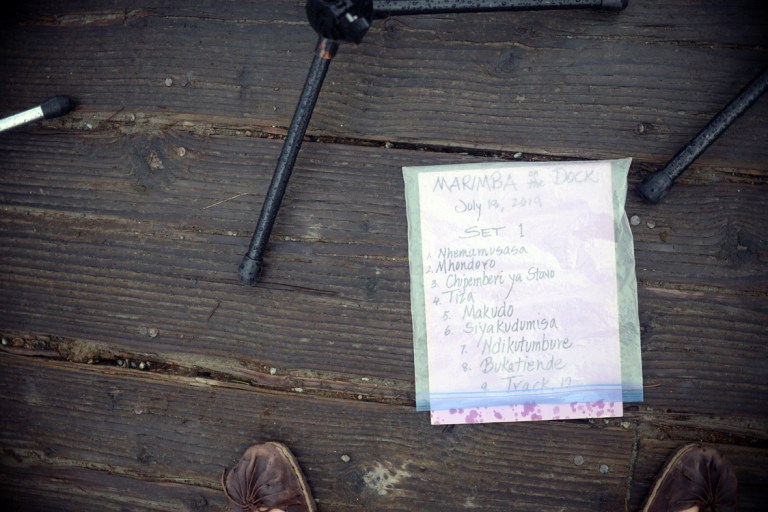 MARIMBA on the DOCK
July 13, 2019
SET 1
1. Nhemamusasa
2. Mhondoro
3. Chipemberi ya Stavo
4. Tiza
5. Makudo
6. Siyakudumisa
7. Ndikutumbure
8. Bukatiende
9. Track 19